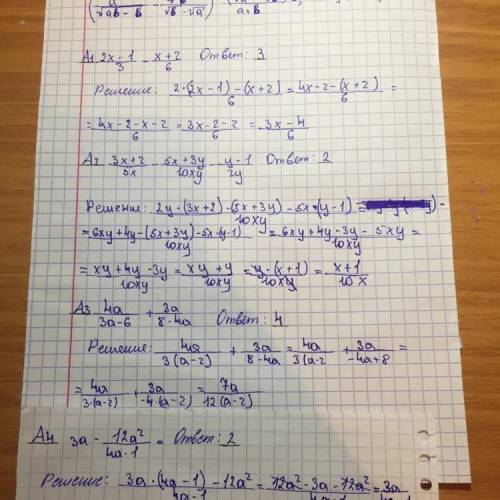 A1 2x-1/3 - x+2/6 Ответ: 3
Решение: 2·(2x-1)-(x+2)/6 = 4x-2-(x+2)/6 =
= 4x-2-x-2/6 = 3x-2-2/6 = 3x-4/6
A2 3x+2/5x - 5x+3y/10xy - y-1/2y Ответ: 2
Решение: 2y·(3x+2)-(5x+3y)-5x·(y-1)/10xy =
= 6xy+4y-(5x+3y)-5x·(y-1)/10xy = 6xy+4y-3y-5xy/10xy =
= xy+4y-3y/10xy = xy+y/10xy = y·(x+1)/10xy = x+1/10x
A3 4a/3a-6 + 3a/8-4a Ответ: 4
Решение: 4a/3(a-2) + 3a/8-4a = 4a/3(a-2 + 3a/-4a+8 =
= 4a/3·(a-2) + 3a/-4·(a-2) = 7a/12(a-2)
A4 3a - 12a²/4a-1 = Ответ: 2
Решение: 3a·(4a-1)-12a²/4a-1 = 12a²-3a-12a² = 3a